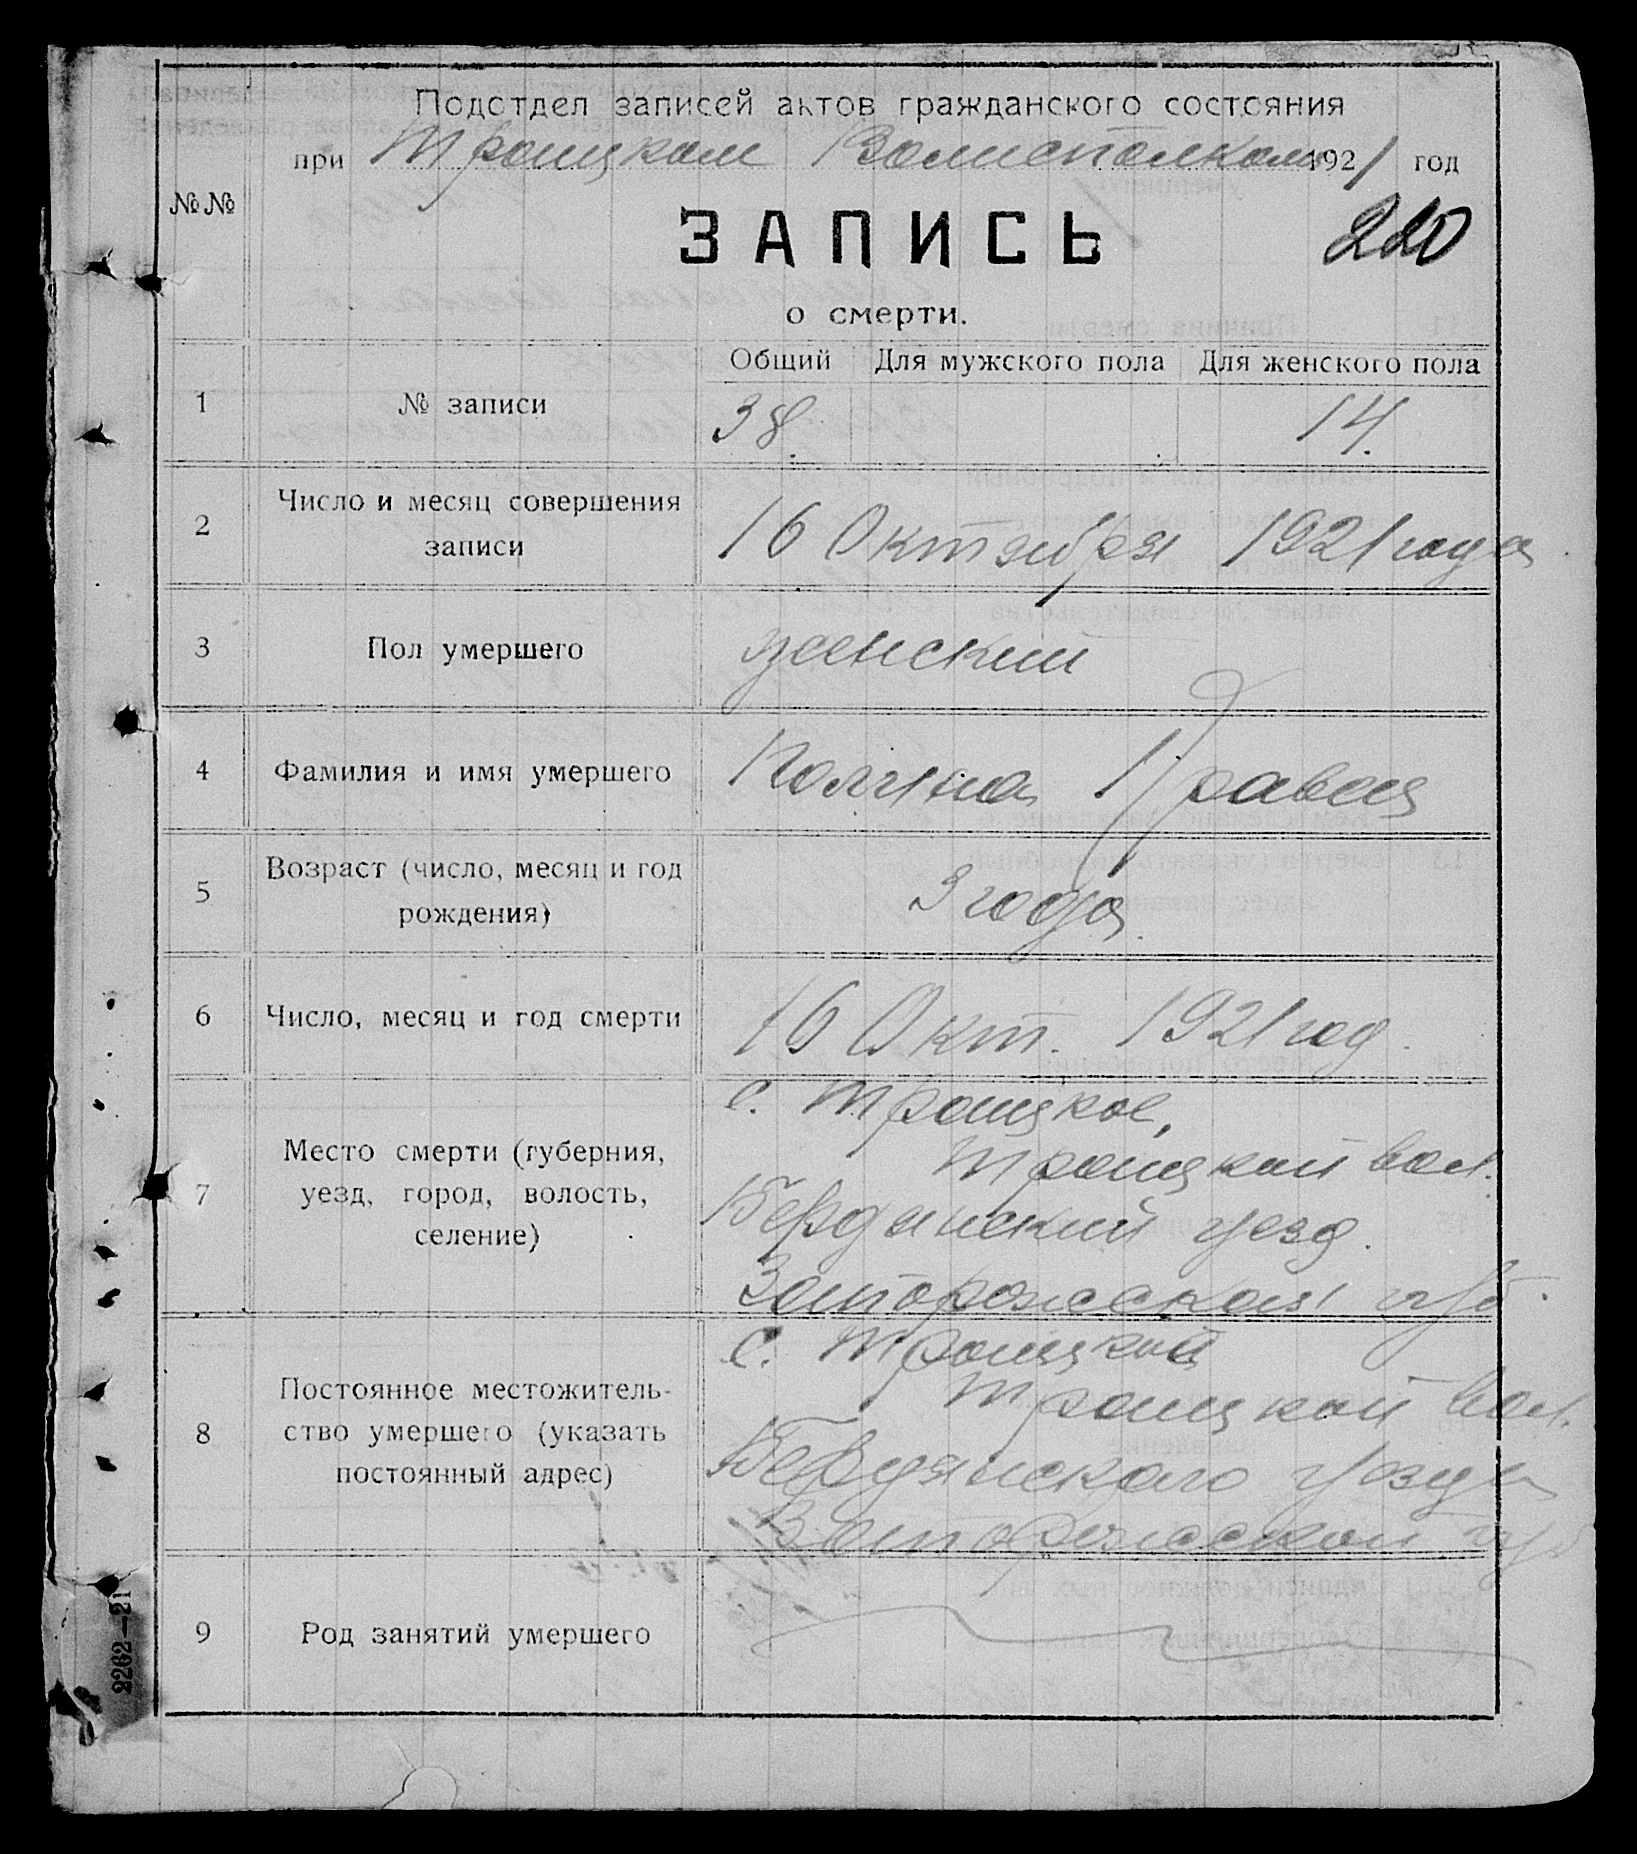 Подотдел записей актов гражданского состояния
при Троицком Волисполкоме 1921 год
№№
ЗАПИСЬ
220
о смерти.
Общий Для мужского пола Для женского пола
1 № записи 38. 14.
2 Число и месяц совершения
записи
16 Октября 1921 года
3 Пол умершего женский
4 Фамилия и имя умершего Кравец
5 Возраст (число, месяц и год
рождения)
3 года
6 Число, месяц и год смерти 16 Окт. 1921 год.
с. Троицкое,
7 Место смерти (губерния,
уезд, город, волость,
селение)
Троицкой вол.
Бердянский уезд.
Запорожской губ.
с. Троицкой
8 Постоянное местожитель-
ство умершего (указать
постоянный адрес)
Троицкой вол.
Бердянского уезда
Запорожской губ
9 Род занятий умершего
2262—21